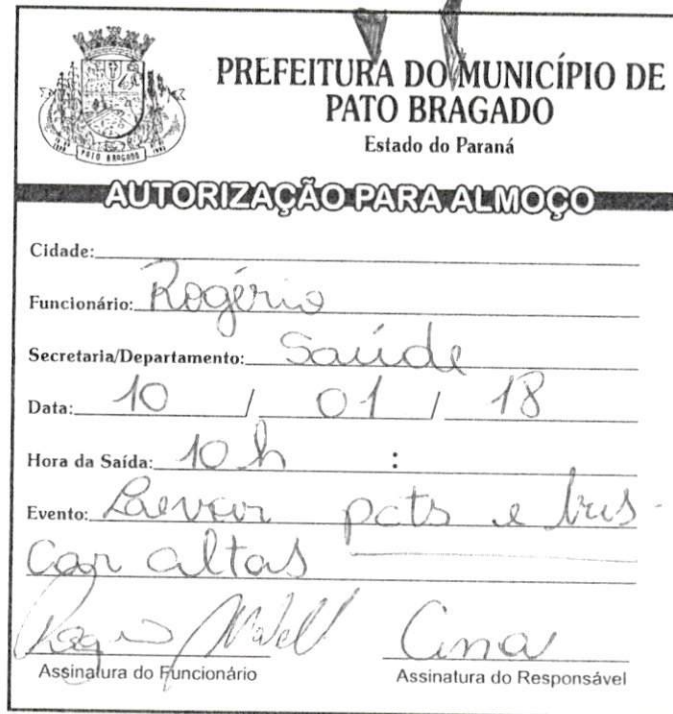 PATO BRAGADO
PREFEITURA DO MUNICÍPIO DE
PATO BRAGADO
Estado do Paraná
AUTORIZAÇÃO PARA ALMOÇO
Cidade:
Funcionário: Rogério
Secretaria/Departamento: Saúde
Data: 10 / 01 / 18
Hora da Saída: 10 h :
Evento: Levar pcts e bus-
car altas
Ana
Assinatura do Funcionário Assinatura do Responsável